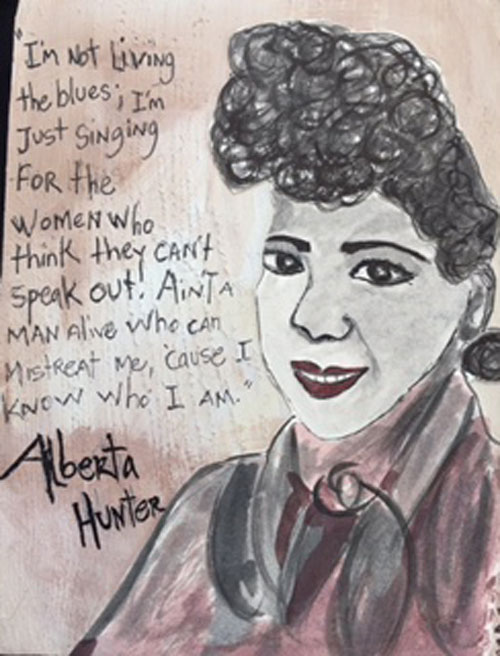 "I'm Not Living
the blues; I'm
Just Singing
FOR the
WOMEN who
think they CAN't
Speak out. AiN'T A
MAN Alive Who can
Mistreat Me, 'cause I
KNOW Who I AM."
Alberta
HUNTER